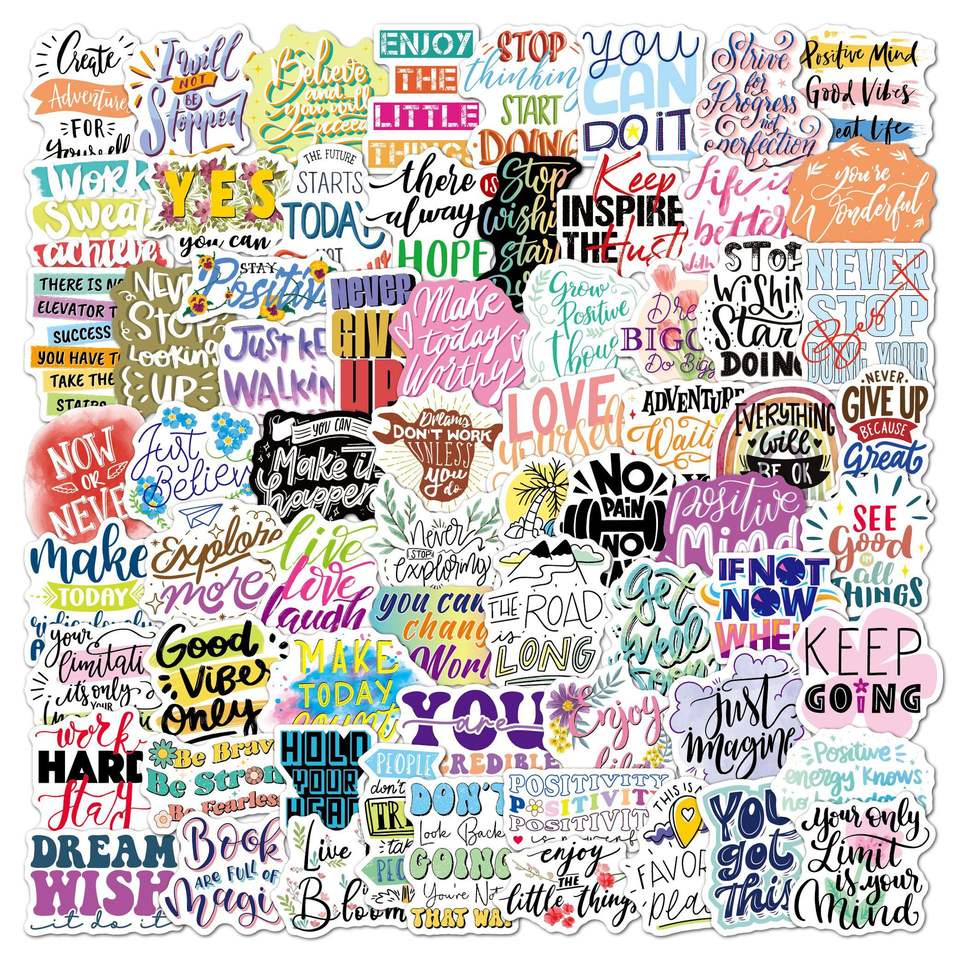 Create
Adventure
FOR
Yourself
I will
NOT
BE
Stopped
Believe
and
you will
succeed
ENJOY
THE
LITTLE
THINGS
STOP
thinking
START
DOING
YOU
CAN
DO iT
Strive
for
Progress
not
perfection
Positive Mind
Good Vibes
eat Life
WORK
Sweat
achieve
YES
you can
THE FUTURE
STARTS
TODAY
NOT
there is
always
HOPE
Stop
wishi
star
Keep
INSPIRE
THE Hust
Life is
better
you're
Wonderful
THERE IS N
ELEVATOR T
SUCCESS
YOU HAVE T
TAKE THE
STAIRS
NEV
STOP
Looking
UP
STAY
Positive
JUST KE
WALKIN
NEVER
GIVE
UP
Make
today
Worthy
Grow
Positive
Thou
Dre
BIGG
Do Bigg
STOP
WiSHiN
Start
DOING
NEVER
STOP
DOING YOUR
Bes
NOW
OR
NEVER
Just
Believe
YOU CAN
Make it
happen
Dreams
DON'T WORK
UNLESS
you do
LOVE
yourself
ADVENTURE
Waiti
EVERYTHING
will
BE OK
NEVER
GIVE UP
BECAUSE
Great
make
TODAY
ridiculously
A
Explore
more
live
love
laugh
Never
STOP
exploring
you can
chang
World
NO
PAIN
NO
Positive
Mind
SEE
Good
IN
all
THINGS
THE ROAD
is
LONG
Get
well
IF NOT
NOW
WHE
KEEP
GOING
your
limitati
it's only
YOUR
Good
Vibes
only
MAKE
TODAY
count
YOU
are
CREDIBLE
Enjoy
life
just
imagine
work
HARD
Stay
Be Brave
Be Stron
Be Fearless
HOLD
YOUR
HEAD
PEOPLE
don't
TR
TAK
PEO
DON'T
Look Back
GOING
You're Not
THAT WA
POSITIVITY
POSITIVITY
POSITIVIT
enjoy
THE
little things
THIS IS A
FAVOR
plac
YOU
got
THIS
Positive
energy knows
no
DREAM
WISH
it do it
Book
ARE FULL OF
Magi
Live
Bloom
your only
Limit
is your
Mind